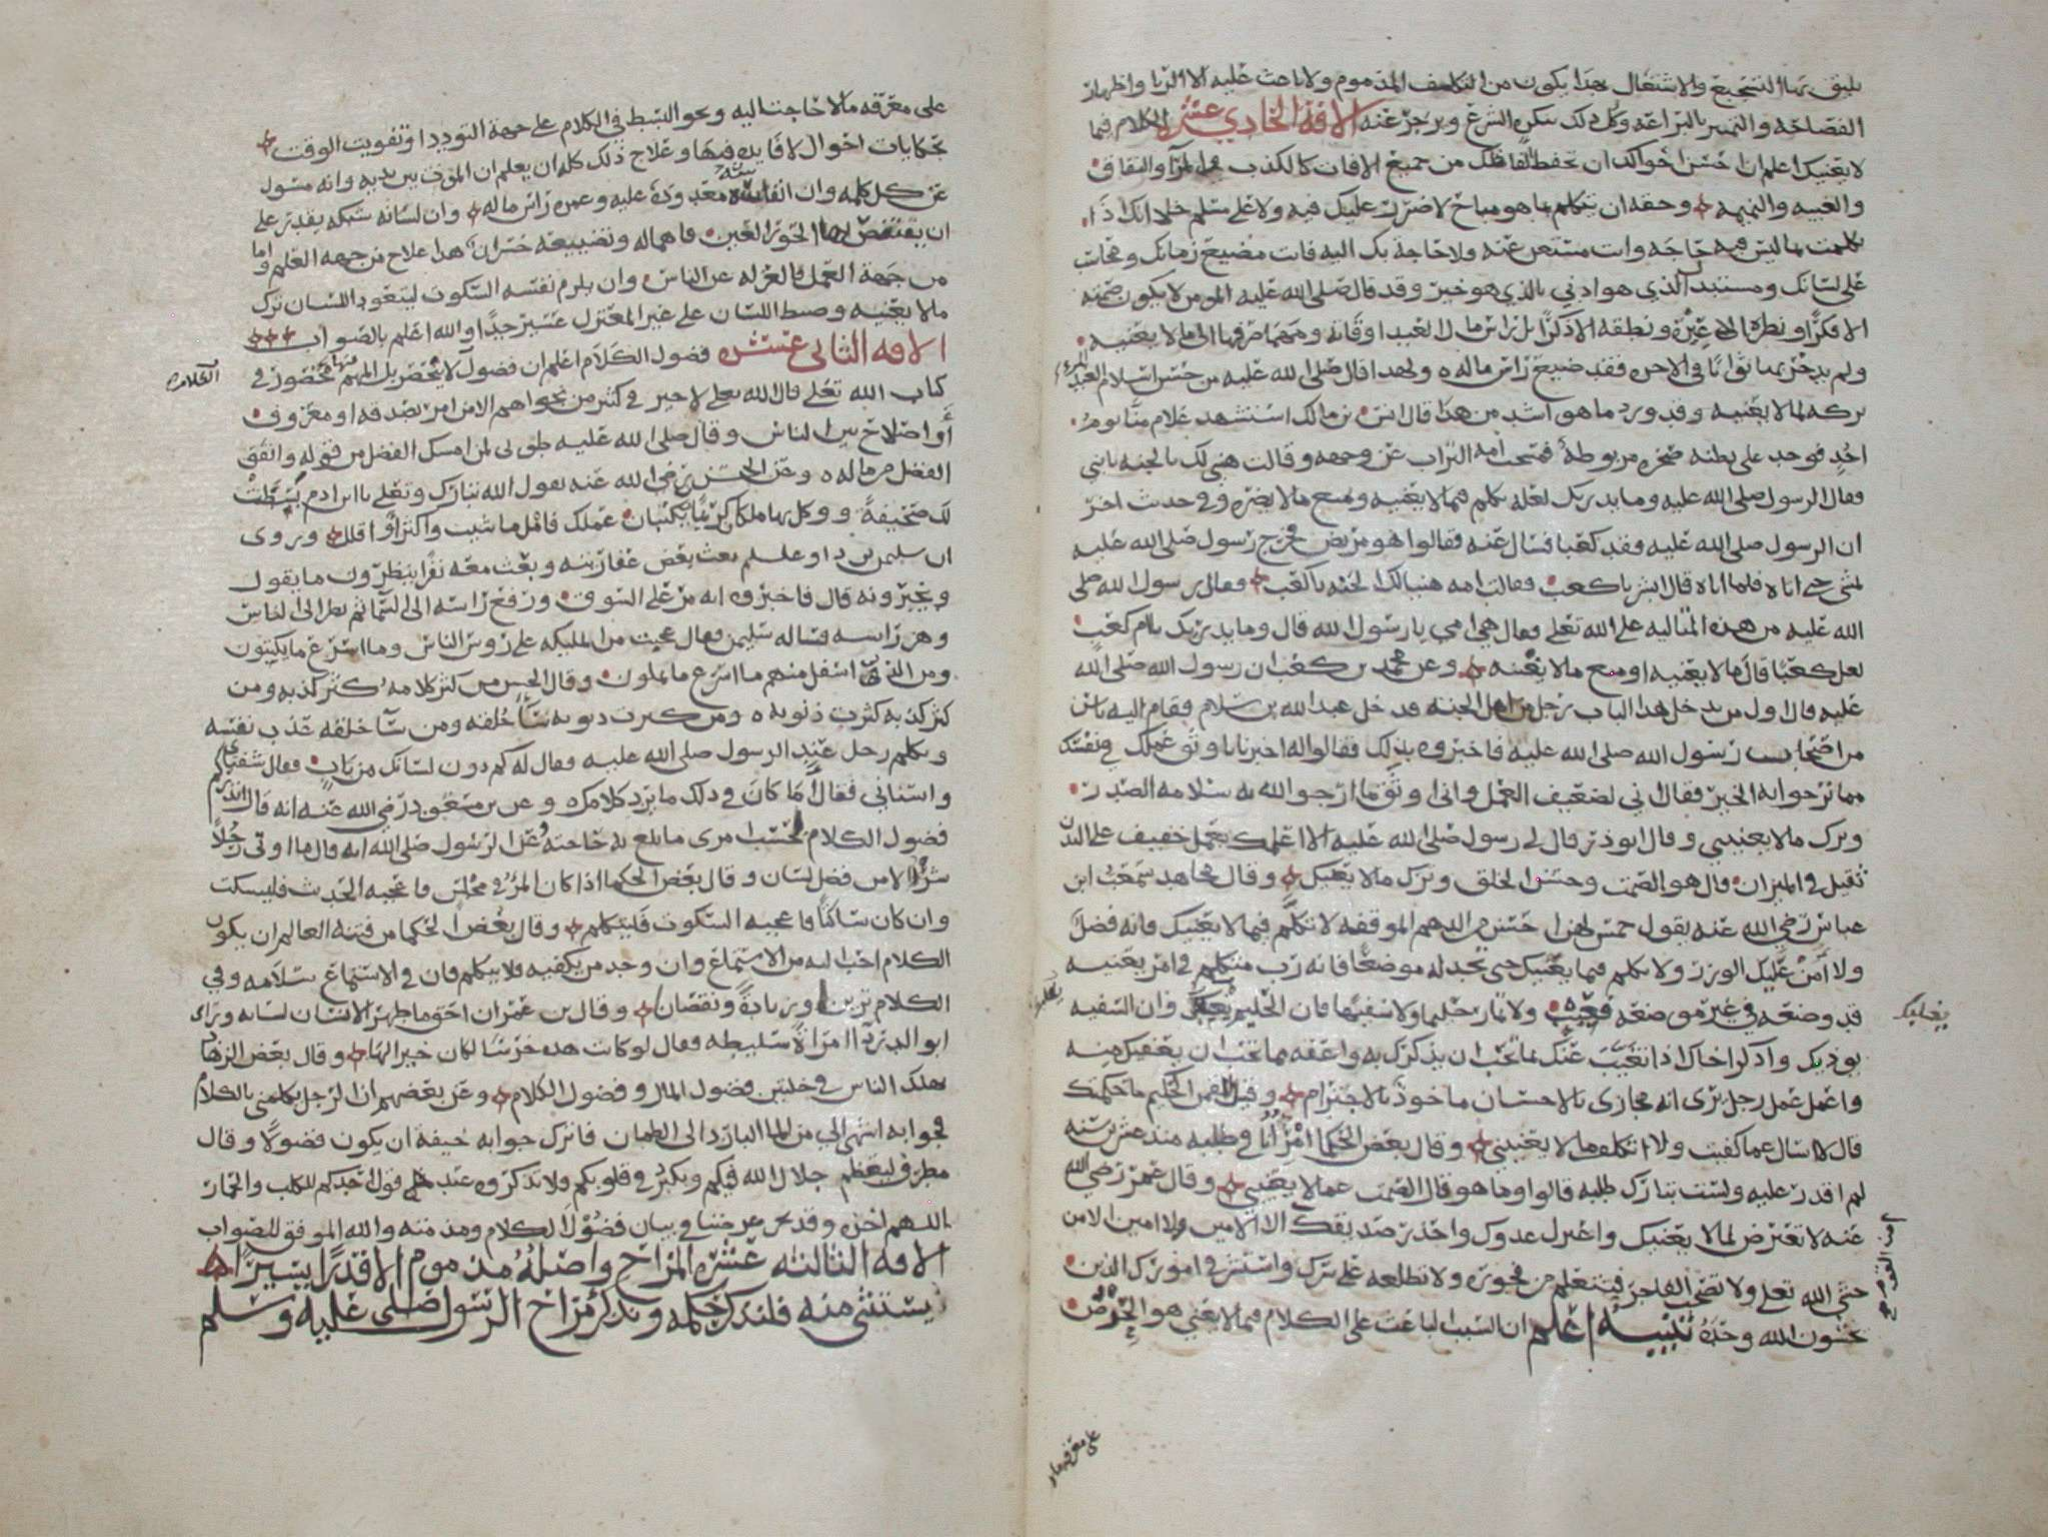 يليق بها التسجيع والاشتغال بهذا يكون من التكلف المذموم ولا باعث عليه الا الريا واظهار
الفصاحه والتميز بالبراعه وكل ذلك ينكره الشرع ويزجر عنه الافة الحادي عشر الكلام فيما
لا يعنيك اعلم ان احسن احوالك ان تحفظ الفاظك من جميع الافات كالكذب والمرا والنفاق
والغيبه والنميمه وحقه ان تتكلم بما هو مباح لا ضرر عليك فيه ولا على مسلم خلا انك اذا
تكلمت بما ليس فيه حاجه وانت مستغن عنه ولا حاجة بك اليه فانت مضيع زمانك ومحاسب
على لسانك ومستبدل الذي هو ادنى بالذي هو خير وقد قال صلى الله عليه المومن لا يكون صمته
الا فكرًا ونظره الا عبرة ونطقه الا ذكرًا بل راس مال العبد اوقاته ومهما صرفها الى ما لا يعنيه
ولم يدخر بها ثوابًا في الاخره فقد ضيع راس ماله ولهذا قال صلى الله عليه من حسن اسلام العبد
المرء
تركه لما لا يعنيه وقد ورد ما هو اشد من هذا قال انس بن مالك استشهد غلام منا يوم
احد فوجد على بطنه صخره مربوطة فمسحت امه التراب عن وجهه وقالت هنيا لك بالجنه يا بني
فقال الرسول صلى الله عليه وما يدريك لعله تكلم فيما لا يعنيه ومنع ما لا يضره وفي حدث اخر
ان الرسول صلى الله عليه وفقد كعبا فسال عنه فقالوا هو مريض فخرج رسول صلى الله عليه
يمشي حتى اتاه فلما اتاه قال ابشر يا كعب فقالت امه هنيا لك الجنه يا كعب فقال رسول الله صلى
الله عليه من هذه المتاليه على الله تعلى فقال هي امي يا رسول الله قال وما يدريك يا ام كعب
لعل كعبًا قال ما لا يعنيه او منع ما لا يغنيه وعن محمد بن كعب ان رسول الله صلى الله
عليه قال اول من يدخل هذا الباب رجل من اهل الجنه فدخل عبد الله بن سلام فقام اليه ناس
من اصحاب رسول الله صلى الله عليه فاخبروه بذلك فقالوا له اخبرنا باوثق عملك في نفسك
مما ترجو ابه الخير فقال اني لضعيف العمل واني اوثق ما ارجو الله به سلامه الصدر
وترك ما لا يعنيني وقال ابو ذر قال لي رسول صلى الله عليه الا اعلمك بعمل خفيف على البدن
ثقيل في الميزان قال هو الصمت وحسن الخلق وترك ما لا يعنيك وقال مجاهد سمعت ابن
عباس رضي الله عنه يقول خمس لهن احسن من الدهم الموقفه لا تتكلم فيما لا يعنيك فانه فضل
ولا آمن عليك الوزر ولا تتكلم فيما يعنيك حتى تجد له موضعًا فانه رب متكلم في امر يعنيه
قد وضعه في غير موضعه فعيب ولا تمار حليما ولا سفيها فان الحليم وان السفيه
يغليك
يوذيك واذكر اخاك اذا تغيب عنك بما تحب ان يذكرك به واعفه مما تحب ان يعفيك منه
واعمل عمل رجل يرى انه مجازى بالاحسان ماخوذ بالاجترام وقيل للقمن الحكيم ما حكمتك
قال لا اسال عما كفيت ولا اتكلف ما لا يعنيني وقال بعض الحكما امرٌ انا في طلبه منذ عشرين سنه
لم اقدر عليه ولست بتارك طلبه قالوا وما هو قال الصمت عما لا يعنيني وقال عمر رضي الله
عنه لا تتعرض لما لا يعنيك واعتزل عدوك واحذر صديقك الا الامين ولا امين الا من
خشي الله تعلى ولا تصحب الفاجر فتتعلم من فجوره ولا تطلعه على سرك واستشر في امورك الذين
يخشون الله وحده تنبيه اعلم ان السبب الباعث على الكلام فيما لا يعني هو الحرص
على معرفه ما
على معرفه ما لا حاجتنا اليه ونحو البسط في الكلام على جهة التودد او تفويت الوقت
بحكايات احوال لا فايده فيها وعلاج ذلك كله ان يعلم ان الموت بين يديه وانه مسول
عن كل كلمه وان انفاسه معدودة عليه وعمره راس ماله وان لسانه شبكه يقدر على
ان يقتنص بها الحور العين فاهماله وتضييعه خسران هذا علاج من جهه العلم واما
من جهة العمل فالعزله عن الناس وان يلزم نفسه السكوت ليتعود اللسان ترك
ما لا يعنيه وضبط اللسان على غير المعتزل عسير جدًا والله اعلم بالصواب
الافه الثانى عشره فضول الكلام اعلم ان فضول لا ينحصر بل المهم منها محصور في
الكلام
كتاب الله تعلى قال الله تعلى لا خير في كثير من نجواهم الا من امر بصدقه او معروف
أو اصلاح بين الناس وقال صلى الله عليه طوبى لمن امسك الفضل من قوله وانفق
الفضل من ماله وعن الحسن رضي الله عنه يقول الله تبارك وتعلى يا ابن ادم بُسِطَتْ
لك صحيفةً ووكل بها ملكان كريمان يكتبان عملك فاقل ما شيت واكثر او اقلل ويروى
ان سليمن بن داود علم بعث بعض عفاريته وبعث معه نفرًا ينظرون ما يقول
ويخبرونه قال فاخبروه انه مر على السوق ورفع راسه الى السما ثم نظر الى الناس
وهز راسه فساله سليمن فقال عجبت من المليكه على روس الناس وما اسرع ما يكتبون
ومن الذين اسفل منهم ما اسرع ما يملون وقال الحسن من كثر كلامه كثر كذبه ومن
كثر كذبه كثرت ذنوبه ومن كثرت ذنوبه سآ خلقه ومن سآ خلقه عذب نفسه
وتكلم رجل عند الرسول صلى الله عليه فقال له كم دون لسانك من باب فقال شفتاي
واسناني فقال أما كان في ذلك ما يرد كلامك وعن بن مسعود رضي الله عنه انه قال انذركم
فضول الكلام بحسب امرى ما بلغ به حاجته وعن الرسول صلى الله انه قال ما اوتى رجلاً
شرًا من فضل لسان وقال بعض الحكما اذا كان المرء في مجلس فاعجبه الحديث فليسكت
وان كان ساكتًا فاعجبه السكوت فليتكلم وقال بعض الحكما من فتنه العالم ان يكون
الكلام احب اليه من الاستماع وان وجد من يكفيه فلا يتكلم فان في الاستماع سلامه وفي
الكلام تزين وزيادة ونقصان وقال بن عمر ان احق ما طهر الانسان لسانه وراى
ابو الدردآ امراة سليطه فقال لو كانت هذه خرسا لكان خيرا لها وقال بعض الزهاد
يهلك الناس في خلتين فضول المال وفضول الكلام وعن بعضهم ان الرجل يكلمني بالكلام
فجوابه اشهى الي من الما البارد الى الظمان فاترك جوابه خيفة ان يكون فضولا وقال
مطرف ليعظم جلال الله فيكم ويكبر في قلوبكم ولا تذكروه عند قول احدكم للكلب والحمار
اللهم اخزه وقد عرضنا في بيان فضول الكلام ومذمته والله الموفق للصواب
الافه الثالثه عشره المزاح واصله مذموم الا قدرًا يسيرًا
يستثنى منه فلنذكر حكمه ونذكر مزاح الرسول صلى عليه وسلم